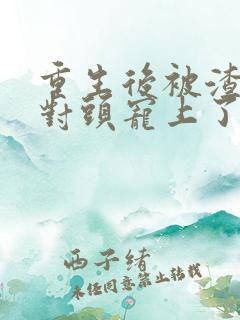 重生後被渣
對頭寵上了
西子緒
未经同意禁止转载